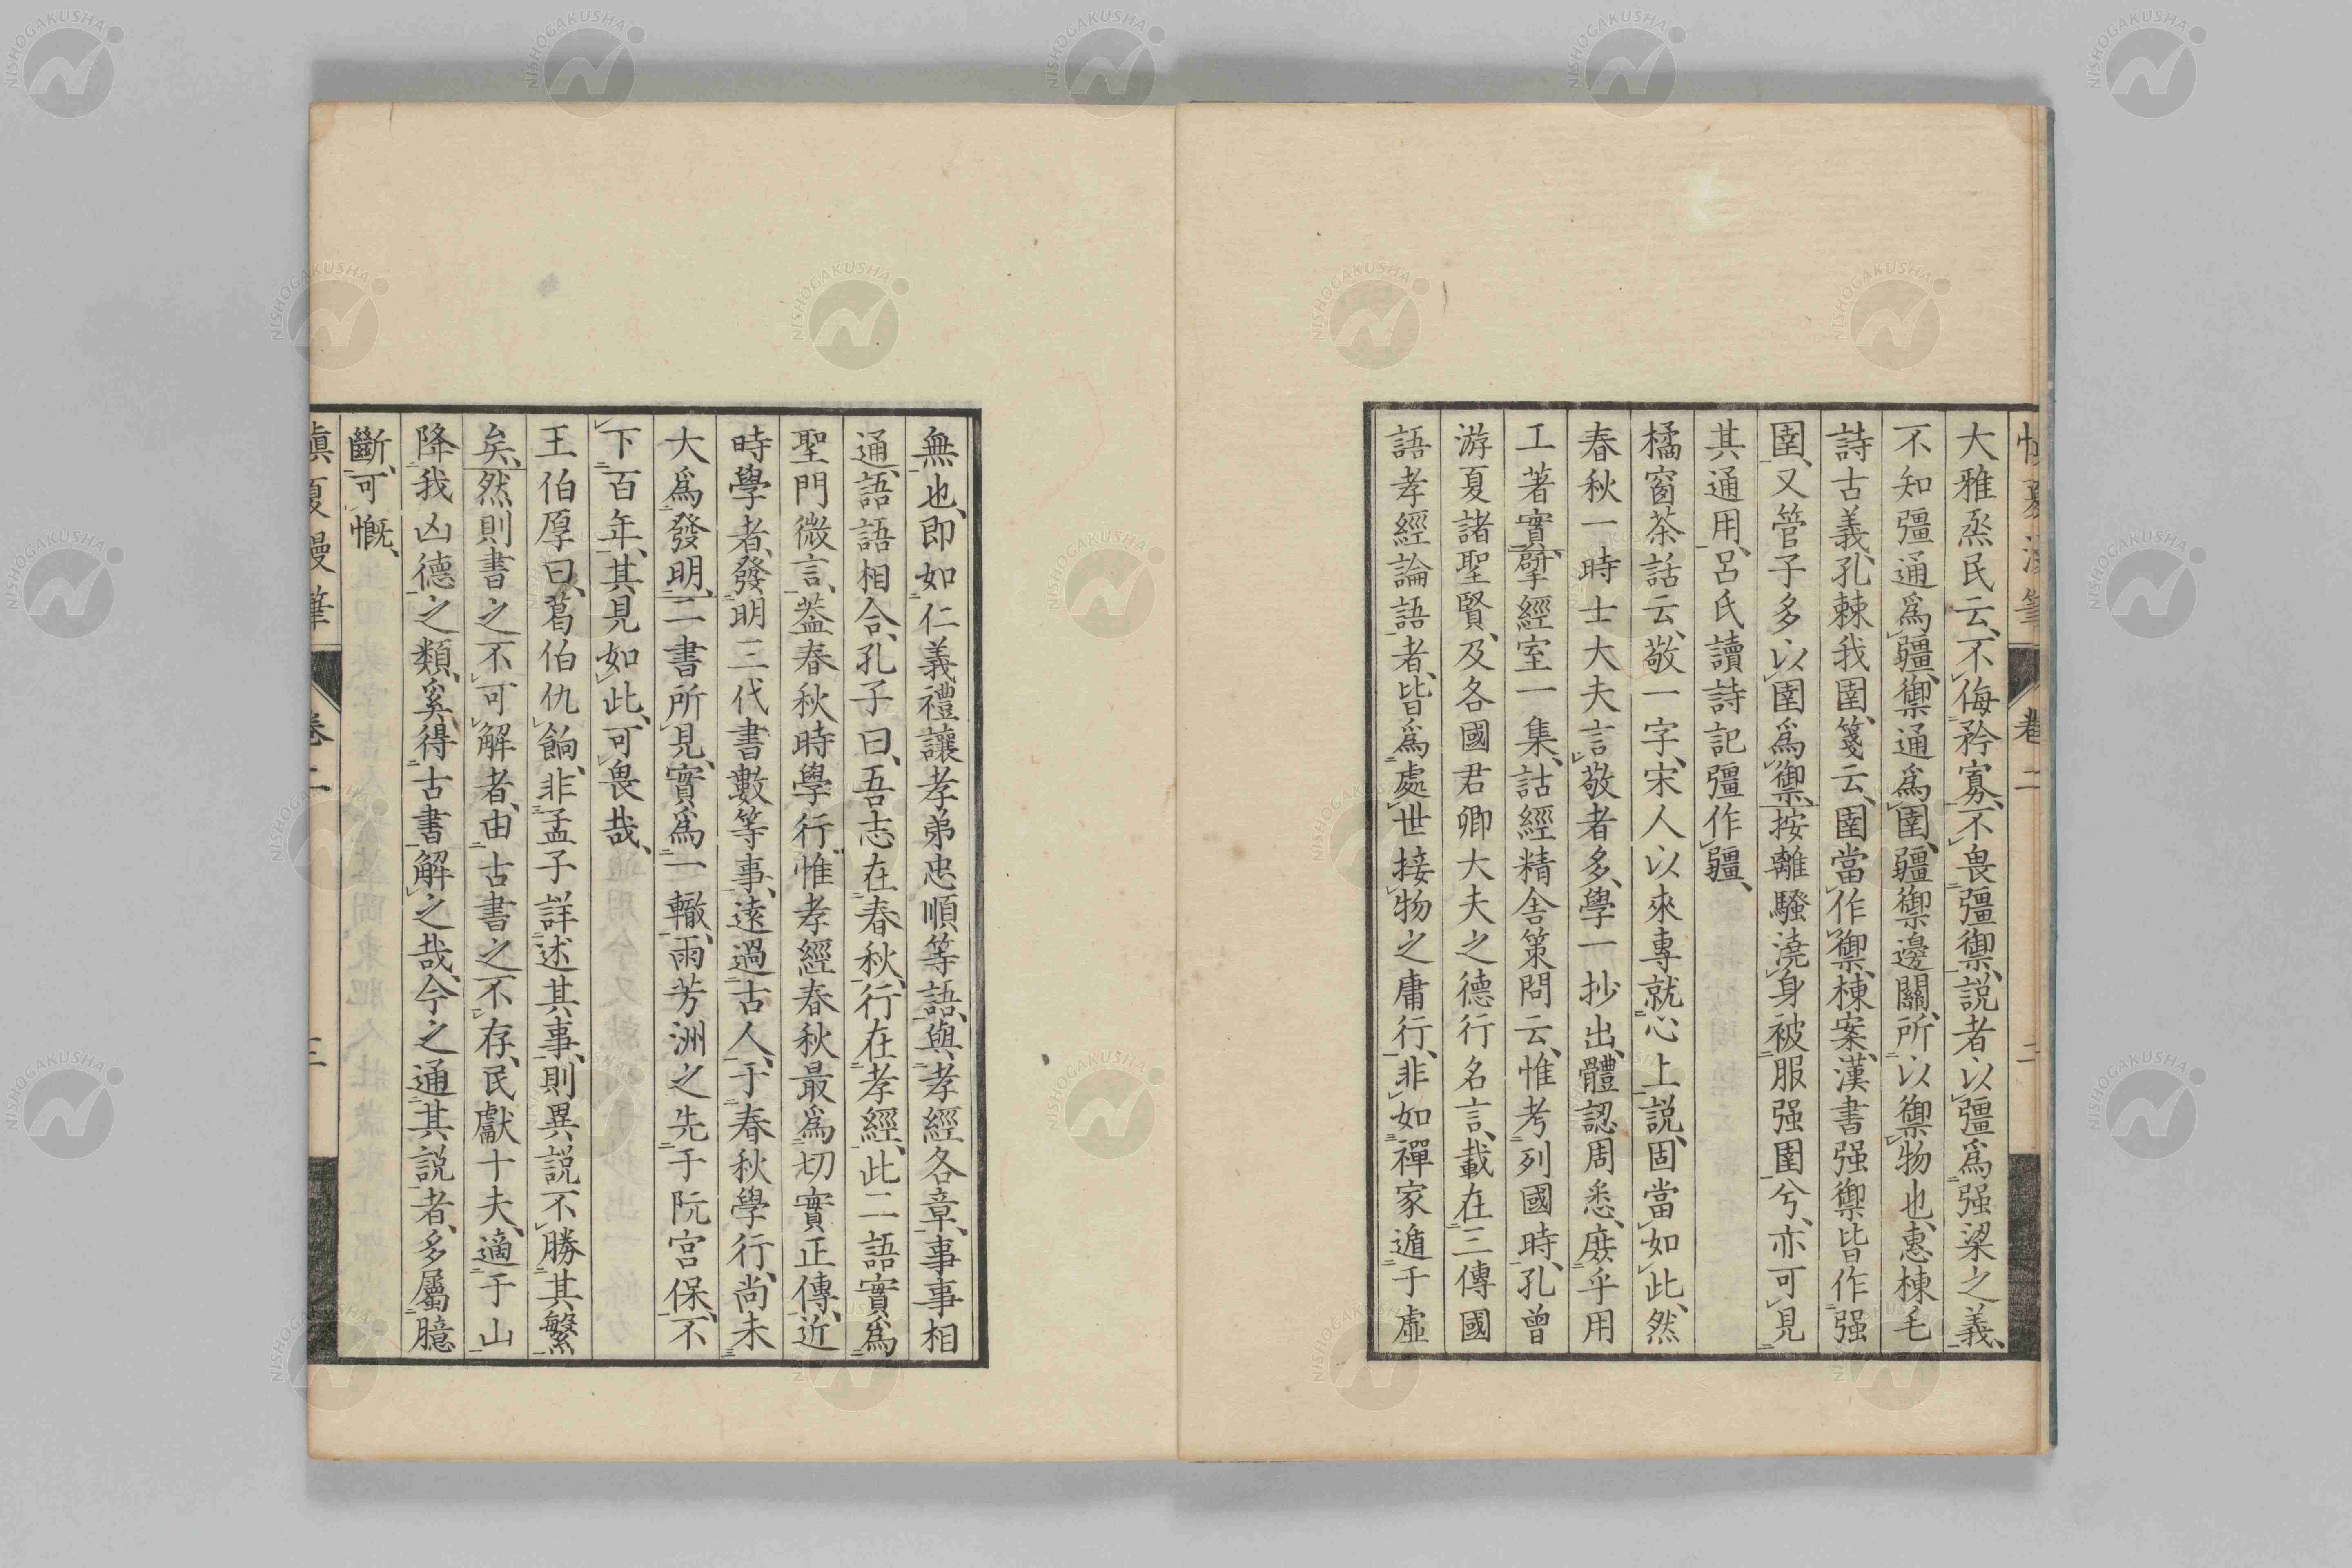 慎夏漫筆 卷二 二
大雅烝民云、不侮矜寡、不畏彊禦、説者以彊爲强梁之義、
不知彊通爲疆、禦通爲圉、疆禦邊關、所以禦物也、惠棟毛
詩古義、孔棘我圉、箋云、圉當作禦、棟案、漢書强禦皆作强
圉、又管子多以圉爲禦、按離騷澆身被服强圉兮、亦可見
其通用、呂氏讀詩記彊作疆、
橘窗茶話云、敬一字、宋人以來專就心上説、固當如此、然
春秋一時士大夫言敬者多、學一抄出、體認周悉、庶乎用
工著實、揅經室一集、詁經精舍策問云、惟考列國時、孔曾
游夏諸聖賢、及各國君卿大夫之德行名言、載在三傳國
語孝經論語者、皆爲處世接物之庸行、非如禪家遁于虛
無也、即如仁義禮讓孝弟忠順等語、與孝經各章、事事相
通、語語相合、孔子曰、吾志在春秋、行在孝經、此二語實爲
聖門微言、葢春秋時學行、惟孝經春秋最爲切實正傳、近
時學者、發明三代書數等事、遠過古人、于春秋學行、尚未
大爲發明、二書所見、實爲一轍、雨芳洲之先于阮宮保、不
下百年、其見如此、可畏哉、
王伯厚曰、葛伯仇餉、非孟子詳述其事、則異説不勝其繁
矣、然則書之不可解者、由古書之不存、民獻十夫、適于山
降我凶德之類、奚得古書解之哉、今之通其説者、多屬臆
斷、可慨、
慎夏漫筆 卷二 三
NISHOGAKUSHA